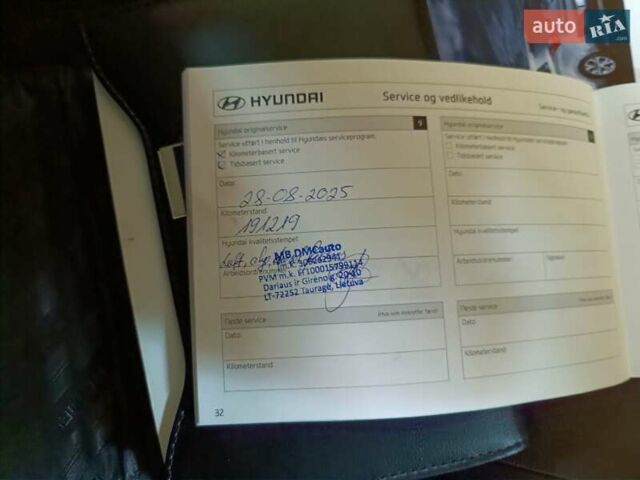 auto RIA
.com
HYUNDAI
Service og vedlikehold
Service- og
Hyundai originalservice
9
Service utført i henhold til Hyundais serviceprogram.
Kilometerbasert service
Tidsbasert service
Dato:
28-08-2025
Kilometerstand:
191219
Hyundai kvalitetsstempel:
MB DMCauto
Arbeidsordrenummer:
PVM m.k.
Dariaus ir Girėno g.
LT-72252 Tauragė, Lietuva
Neste service
Dato:
Kilometerstand:
Hyundai originalservice
Service utført i henhold til Hyundais serviceprogram.
Kilometerbasert service
Tidsbasert service
Dato:
Kilometerstand:
Hyundai kvalitetsstempel:
Arbeidsordrenummer:
Signatur:
Neste service
Dato:
Kilometerstand:
32